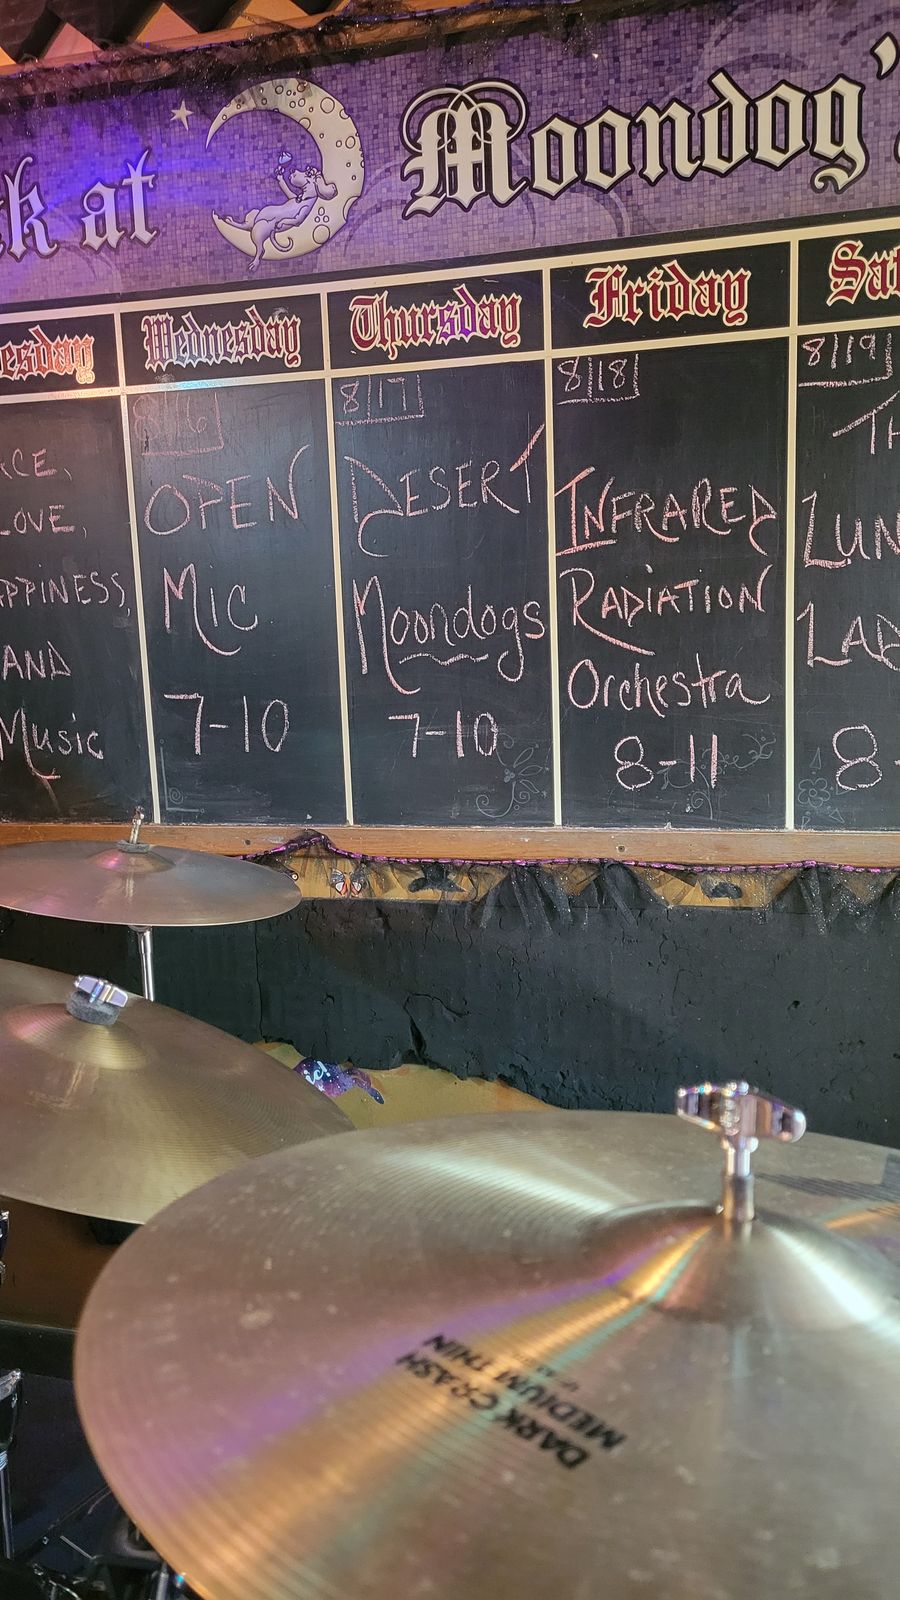 k at Moondog's
esday Wednesday Thursday Friday Sat
CE,
LOVE,
APPINESS,
AND
Music
8/16
OPEN
Mic
7-10
8/17
DESERT
Moondogs
7-10
8/18
INFRARED
RADIATION
Orchestra
8-11
8/19
TH
LUN
LAD
8-
ic!
DARK CRASH
MEDIUM THIN